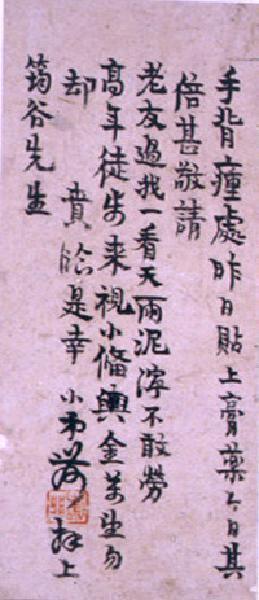 手背瘇處昨日貼上膏藥今日其
倍甚敬請
老友過我一看天雨泥濘不敢勞
高年徒步来視小備輿金萬望勿
却 賁臨是幸 小弟 拜上
筠谷先生